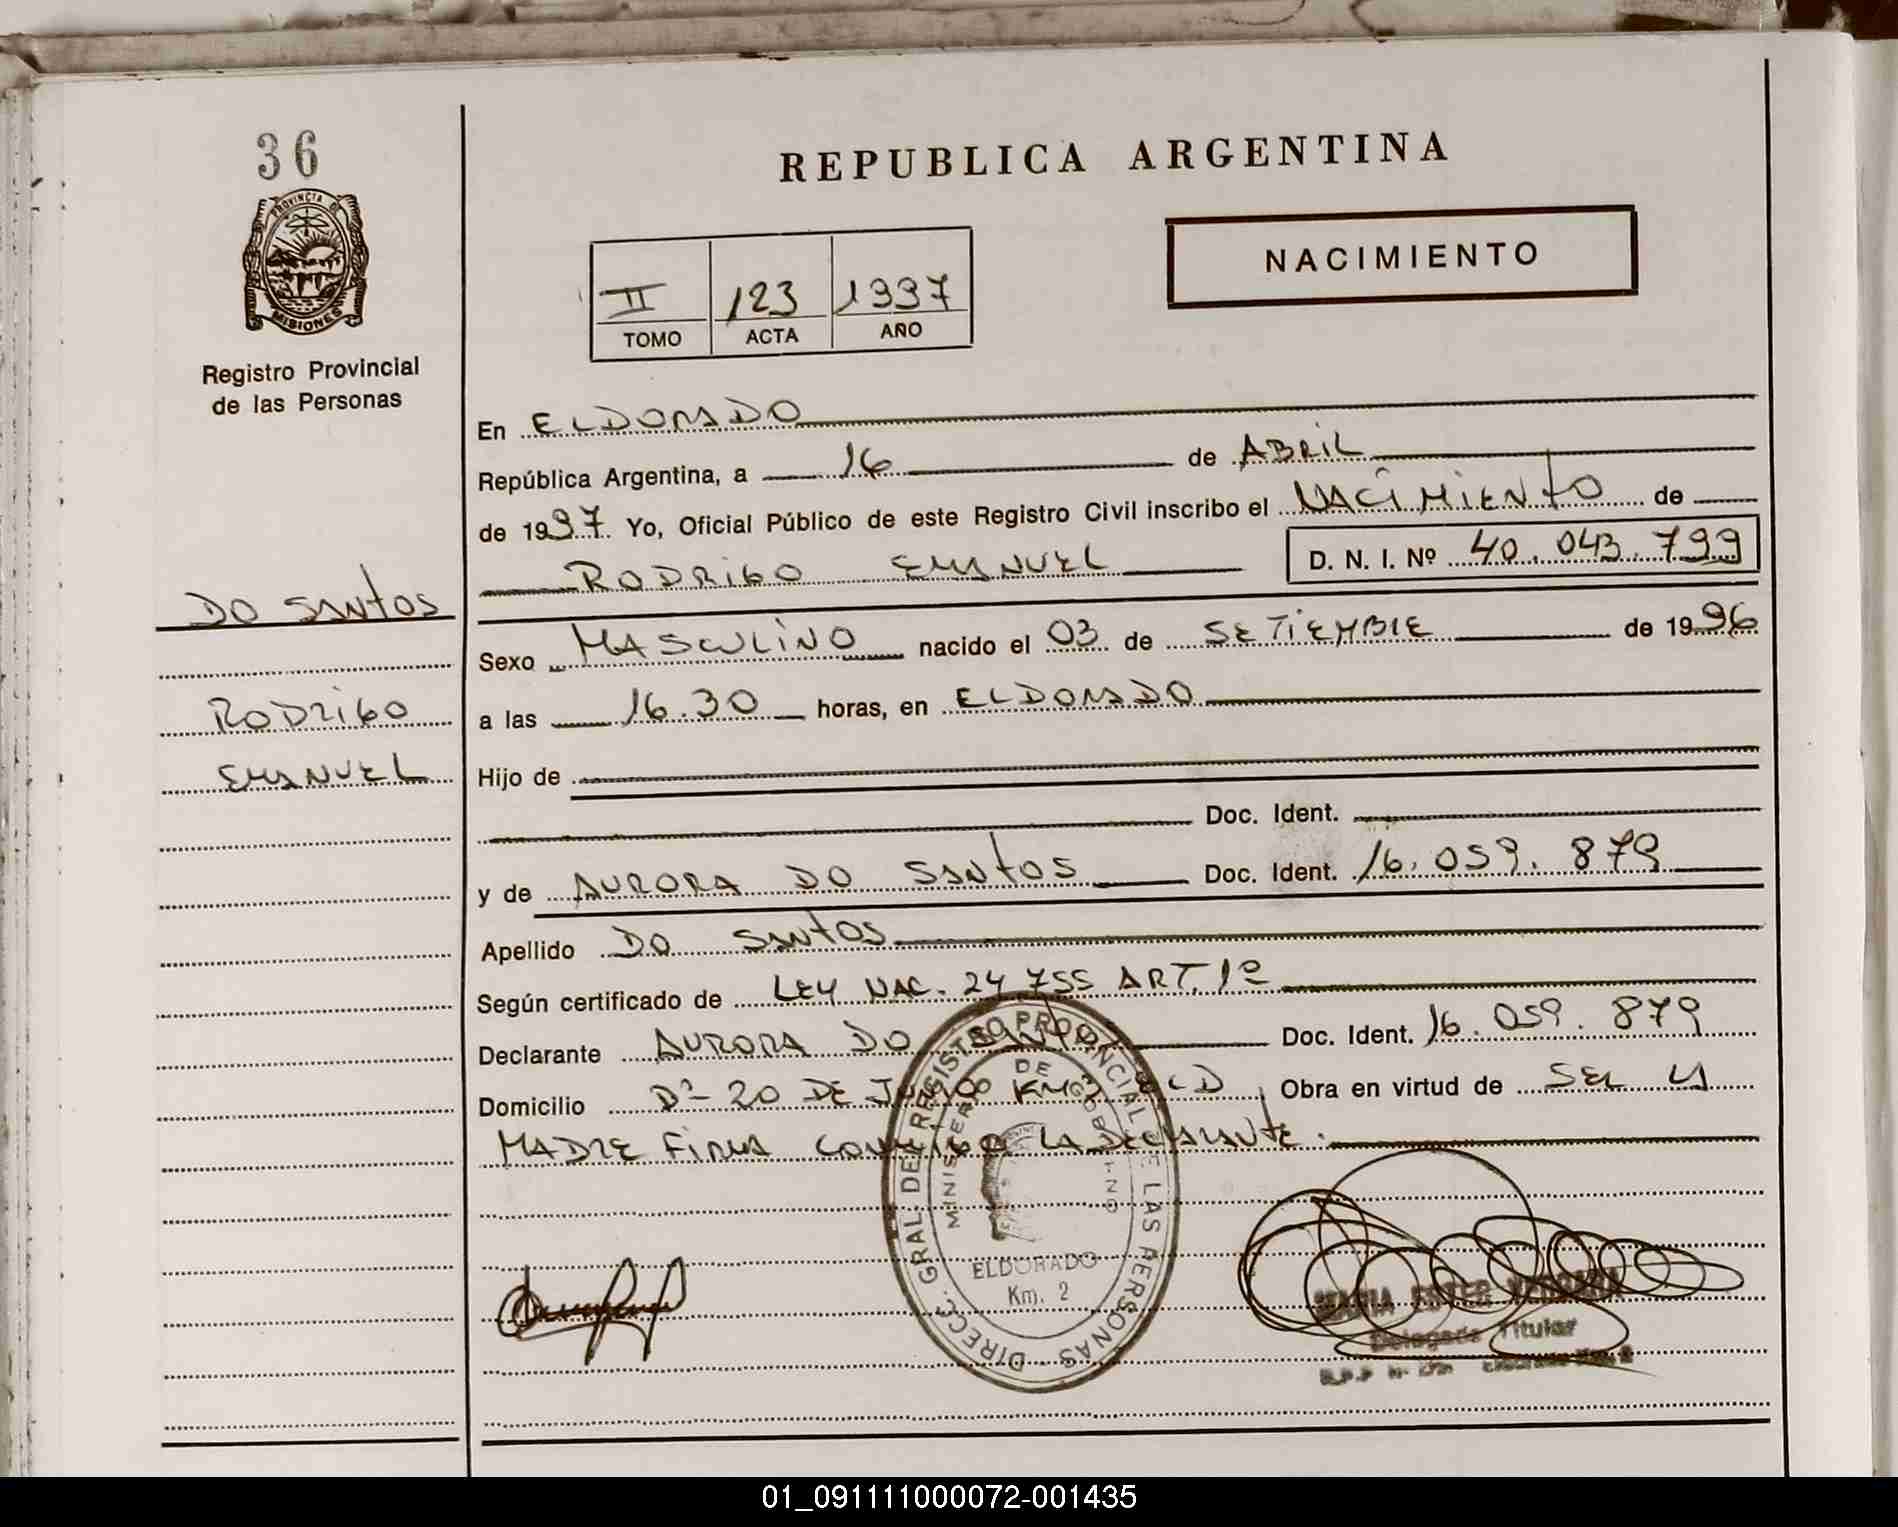 36
PROVINCIA DE
MISIONES
Registro Provincial
de las Personas
DO SANTOS
RODRIGO
EMANUEL
REPUBLICA ARGENTINA
NACIMIENTO
II 123 1997
TOMO ACTA AÑO
En ELDORADO
República Argentina, a 16 de ABRIL
de 1997. Yo, Oficial Público de este Registro Civil inscribo el NACIMIENTO de
RODRIGO EMANUEL D. N. I. Nº 40.043.799
Sexo MASCULINO nacido el 03 de SETIEMBRE de 1996
a las 16.30 horas, en ELDORADO
Hijo de
Doc. Ident.
y de AURORA DO SANTOS Doc. Ident. 16.059.879
Apellido DO SANTOS
Según certificado de LEY NAC. 24755 ART. 1º
Declarante AURORA DO SANTOS Doc. Ident. 16.059.879
Domicilio Bº 20 DE JUNIO KM 2 ELD, Obra en virtud de SER LA
MADRE FIRMA CONMIGO LA DECLARANTE.
DIRECC. GRAL. DEL REGISTRO PROVINCIAL DE LAS PERSONAS
MINISTERIO DE GOBIERNO
ELDORADO
Km. 2
MARIA ESTER
Delegada Titular
01_091111000072-001435